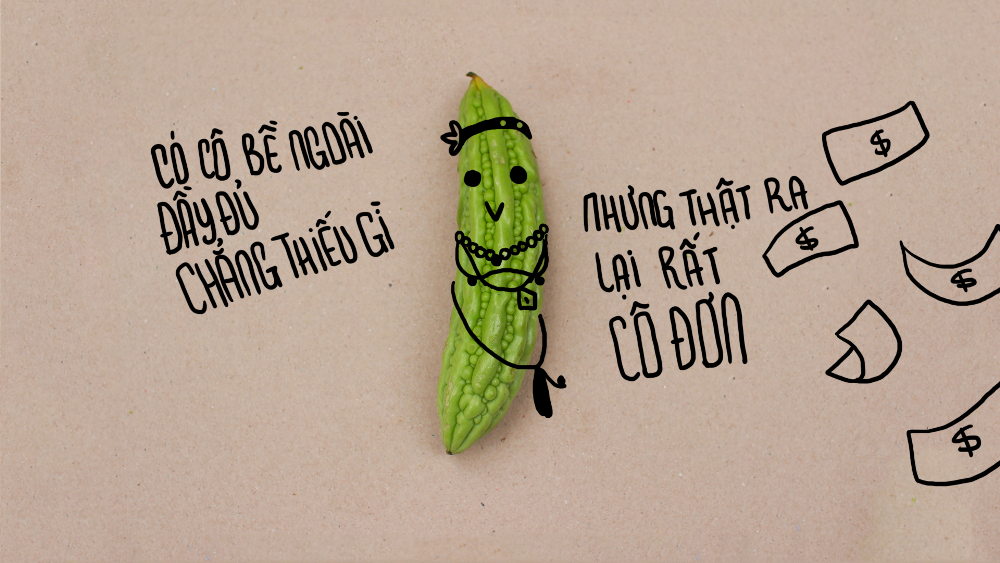 CÓ CÔ BỀ NGOÀI
ĐẦY ĐỦ
CHẲNG THIẾU GÌ
NHƯNG THẬT RA
LẠI RẤT
CÔ ĐƠN
$
$
$
$